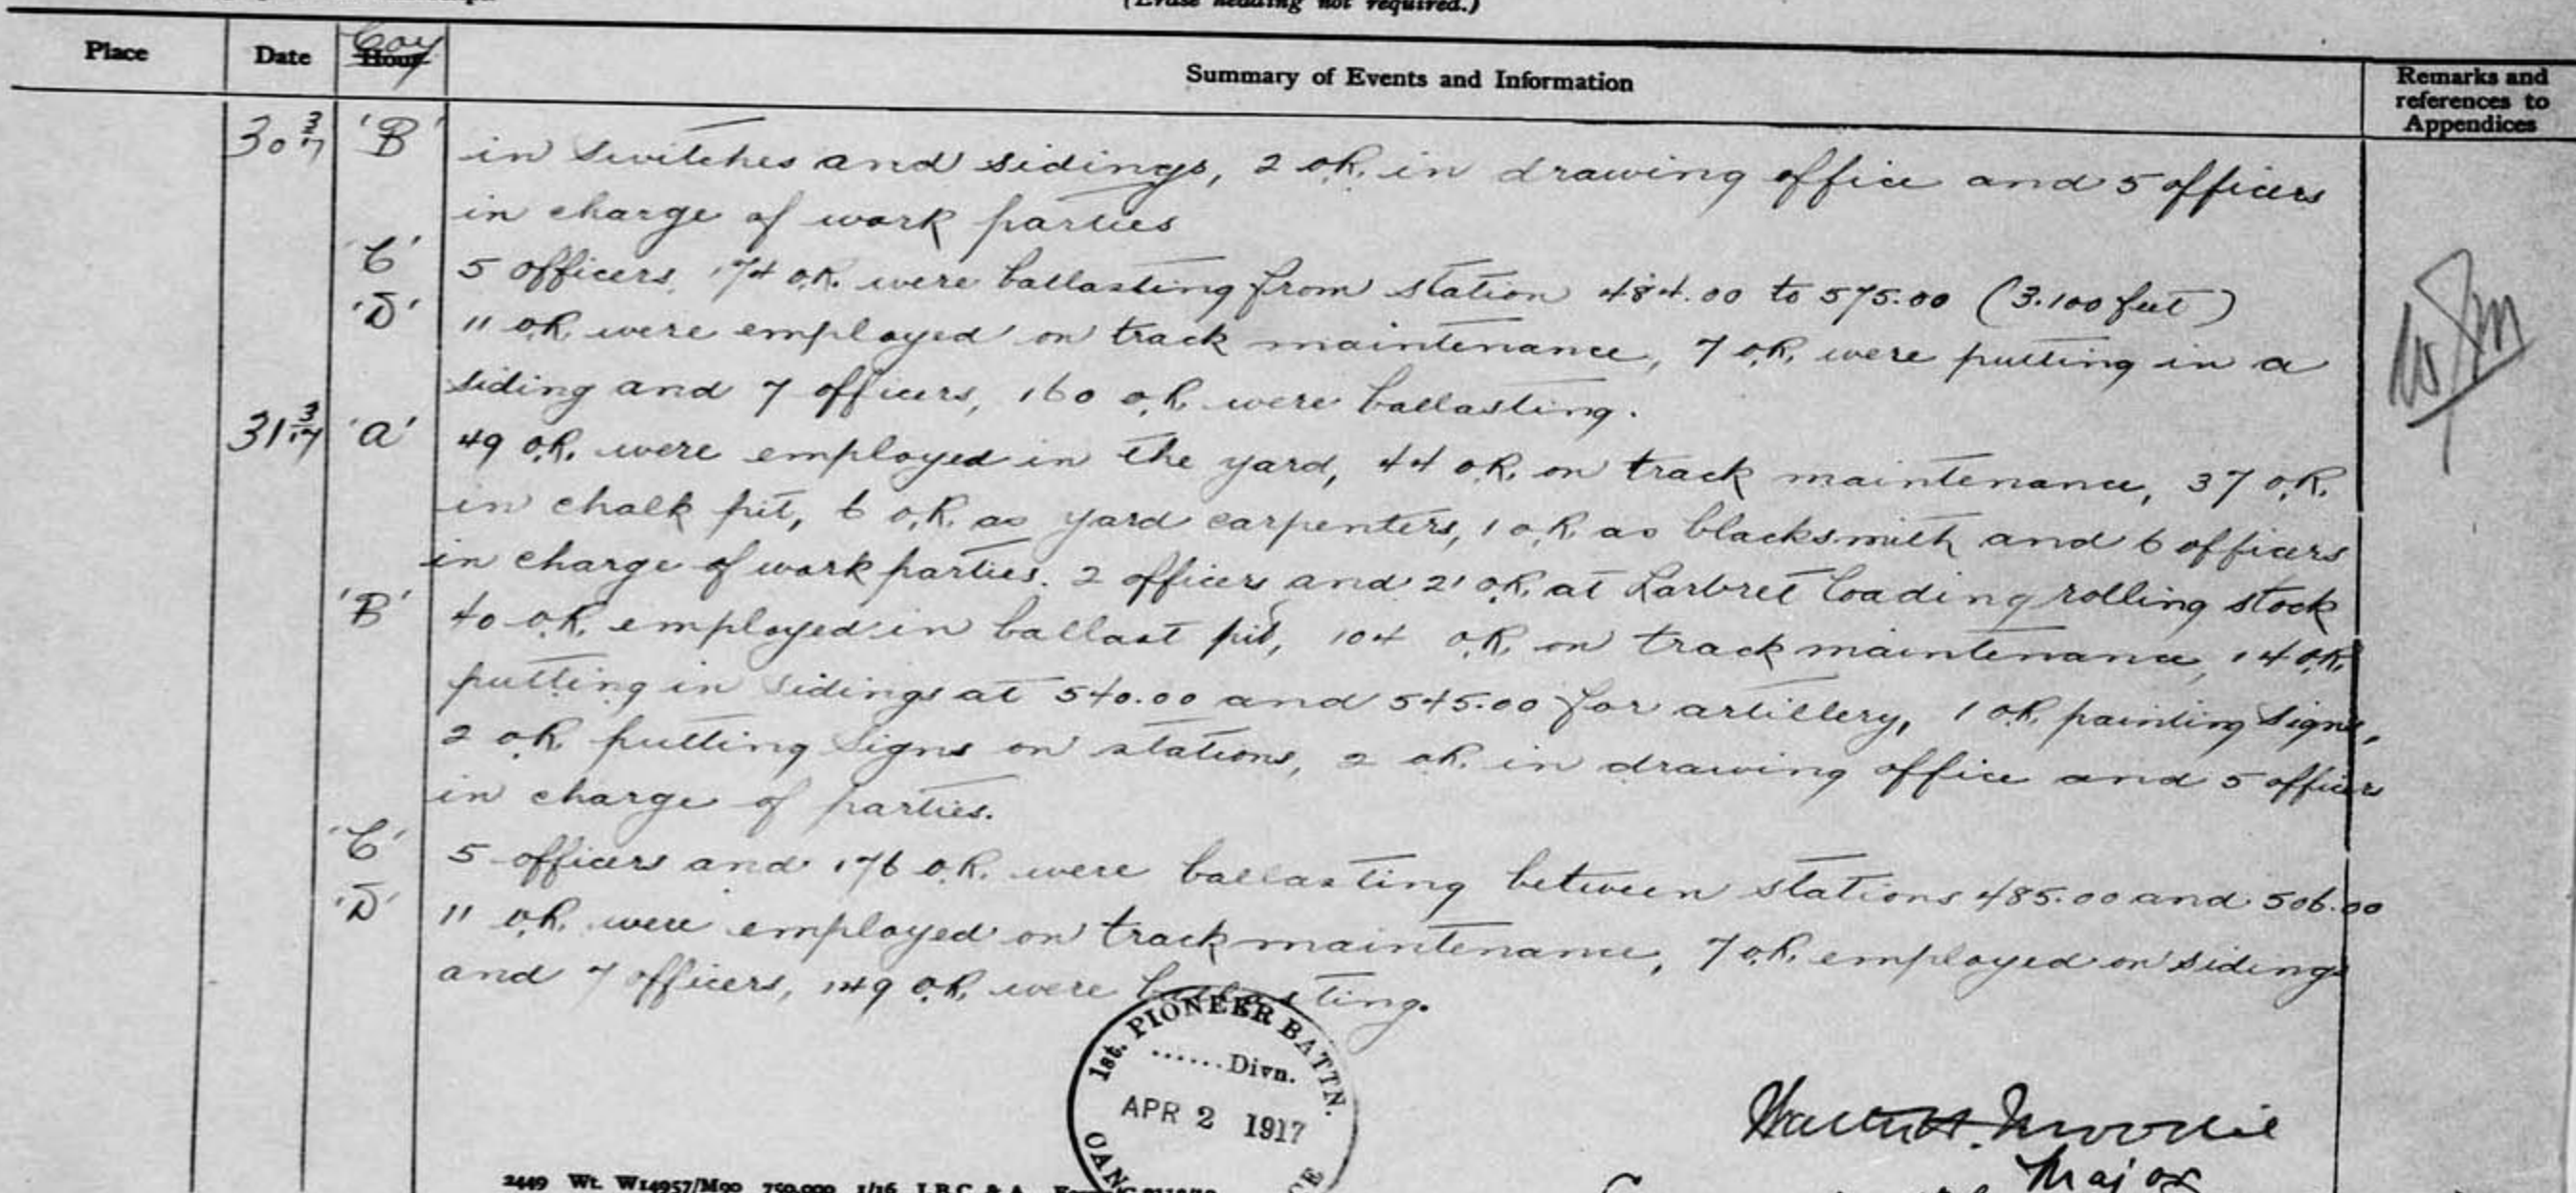 (Erase heading not required.)
Place Date Hour Coy Summary of Events and Information Remarks and references to Appendices
30 3/17 'B' in switches and sidings, 2 o.R. in drawing office and 5 officers
in charge of work parties
'C' 5 officers, 174 o.R. were ballasting from station 484.00 to 575.00 (3.100 feet)
'D' 11 o.R. were employed on track maintenance, 7 o.R. were putting in a
siding and 7 officers, 160 o.R. were ballasting.
31 3/17 'A' 49 o.R. were employed in the yard, 44 o.R. on track maintenance, 37 o.R.
in chalk pit, 6 o.R. as yard carpenters, 1 o.R. as blacksmith and 6 officers
in charge of work parties. 2 officers and 21 o.R. at Larbret loading rolling stock
'B' 40 o.R. employed in ballast pit, 104 o.R. on track maintenance, 14 o.R.
putting in sidings at 540.00 and 545.00 for artillery, 1 o.R. painting signs,
2 o.R. putting signs on stations, 2 o.R. in drawing office and 5 officers
in charge of parties.
'C' 5 officers and 176 o.R. were ballasting between stations 485.00 and 506.00
'D' 11 o.R. were employed on track maintenance, 7 o.R. employed on sidings
and 7 officers, 149 o.R. were ballasting.
1st. PIONEER BATTN.
......Divn.
APR 2 1917
CAN
CE
Major
2449 Wt. W14957/M90 750,000 1/16 J.B.C. & A.